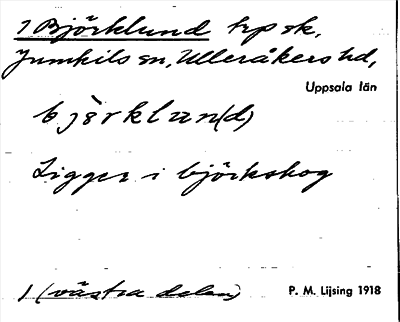 1 Björklund trp sk,
Jumkils sn, Ulleråkers hd,
Uppsala län
björklun(d)
Ligger i björkskog
1 (västra delen)
P. M. Lijsing 1918